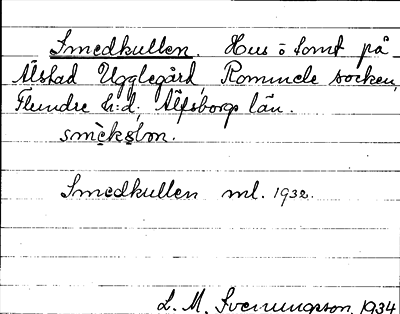 Smedkullen. Hus o tomt på
Älstad Ugglegård, Rommele socken,
Flundre h:d, Älfsborgs län.
Smedkullen ml. 1932.
L. M. Svenungsson, 1934